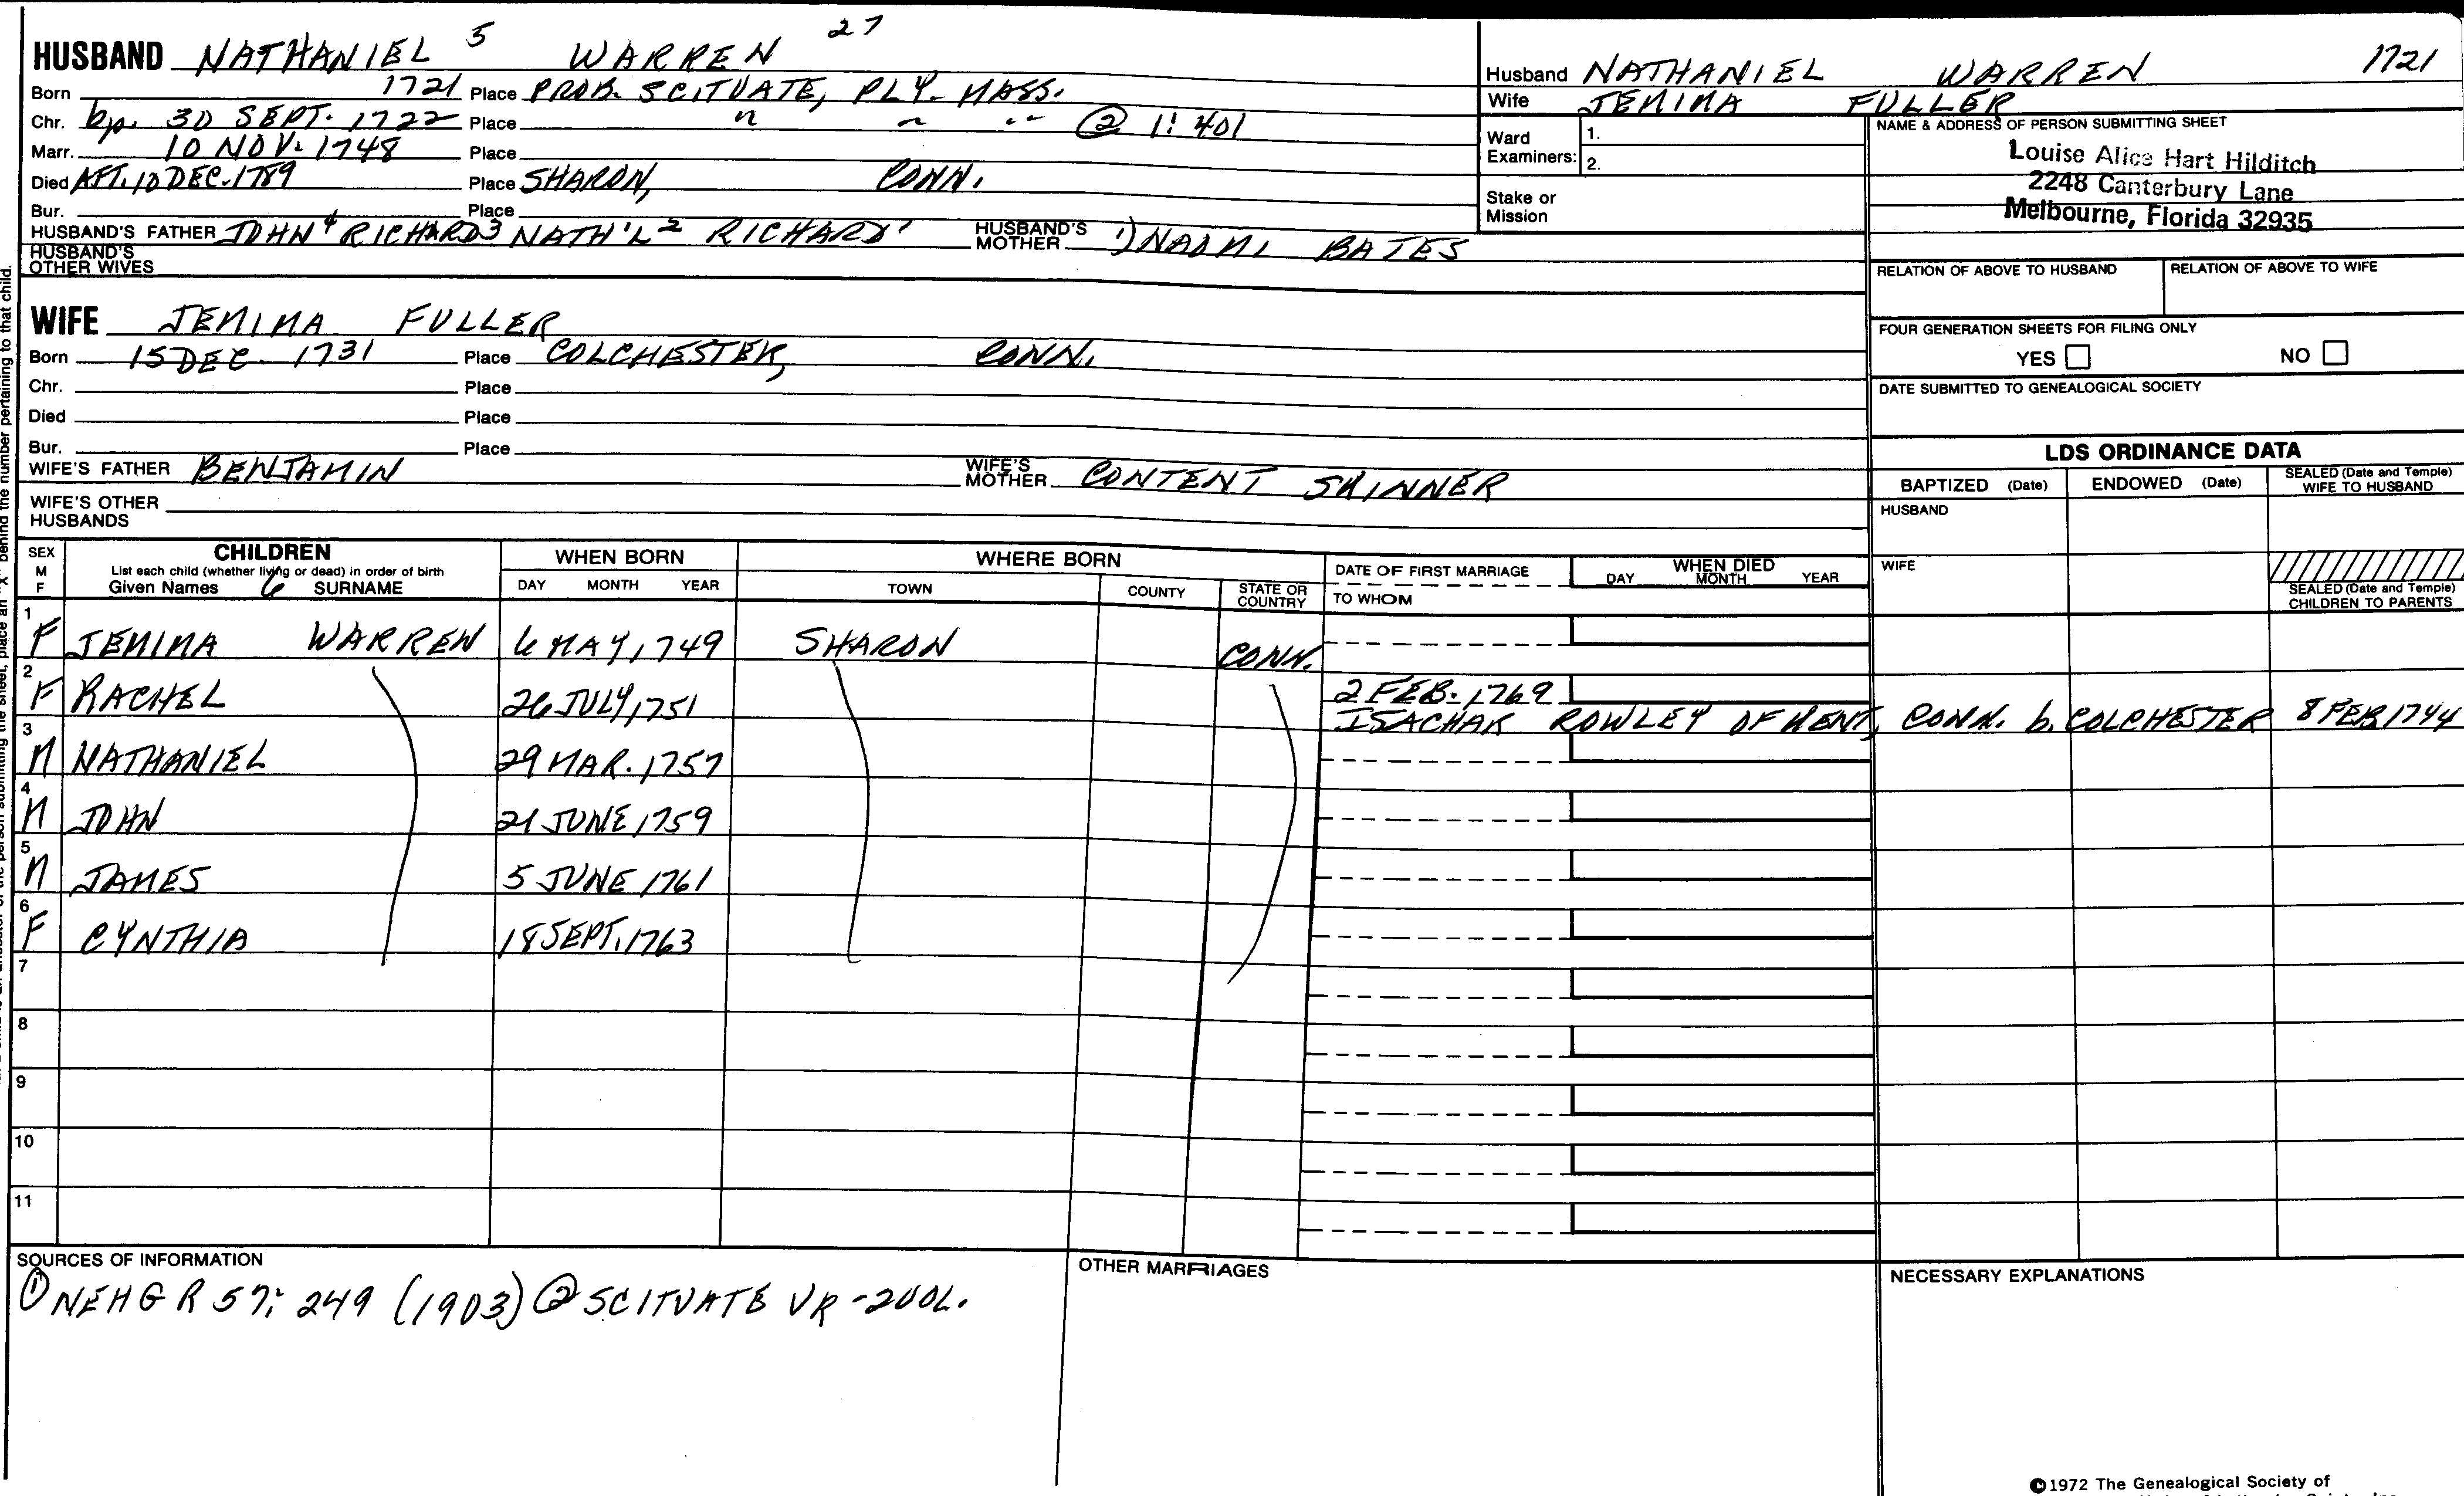 HUSBAND NATHANIEL 5 WARREN 27
Born 1721 Place PROB. SCITUATE, PLY. MASS.
Chr. bp. 30 SEPT. 1722 Place " " " ② 1: 401
Marr. 10 NOV. 1748 Place
Died AFT. 10 DEC. 1789 Place SHARON, CONN.
Bur. Place
HUSBAND'S FATHER JOHN 4 RICHARD 3 NATH'L 2 RICHARD ' HUSBAND'S MOTHER 1) NAOMI BATES
HUSBAND'S OTHER WIVES
Husband NATHANIEL WARREN 1721
Wife JEMIMA FULLER
Ward Examiners: 1.
2.
Stake or Mission
NAME & ADDRESS OF PERSON SUBMITTING SHEET
Louise Alice Hart Hilditch
2248 Canterbury Lane
Melbourne, Florida 32935
RELATION OF ABOVE TO HUSBAND RELATION OF ABOVE TO WIFE
FOUR GENERATION SHEETS FOR FILING ONLY
YES NO
DATE SUBMITTED TO GENEALOGICAL SOCIETY
WIFE JEMIMA FULLER
Born 15 DEC. 1731 Place COLCHESTER, CONN.
Chr. Place
Died Place
Bur. Place
WIFE'S FATHER BENJAMIN WIFE'S MOTHER CONTENT SKINNER
WIFE'S OTHER HUSBANDS
LDS ORDINANCE DATA
BAPTIZED (Date) ENDOWED (Date) SEALED (Date and Temple) WIFE TO HUSBAND
HUSBAND
WIFE
SEALED (Date and Temple) CHILDREN TO PARENTS
SEX M F
CHILDREN
List each child (whether living or dead) in order of birth
Given Names 6 SURNAME
WHEN BORN
DAY MONTH YEAR
WHERE BORN
TOWN COUNTY STATE OR COUNTRY
DATE OF FIRST MARRIAGE
TO WHOM
WHEN DIED
DAY MONTH YEAR
1 F JEMIMA WARREN 6 MAY, 1749 SHARON CONN.
2 F RACHEL 26 JULY, 1751 2 FEB. 1769
ISACHAR ROWLEY OF KENT, CONN. b. COLCHESTER 8 FEB 1744
3 M NATHANIEL 29 MAR. 1757
4 M JOHN 21 JUNE, 1759
5 M JAMES 5 JUNE 1761
6 F CYNTHIA 18 SEPT. 1763
7
8
9
10
11
SOURCES OF INFORMATION
① NEHGR 57: 249 (1903) ② SCITUATE VR - 2 VOL.
OTHER MARRIAGES
NECESSARY EXPLANATIONS
©1972 The Genealogical Society of